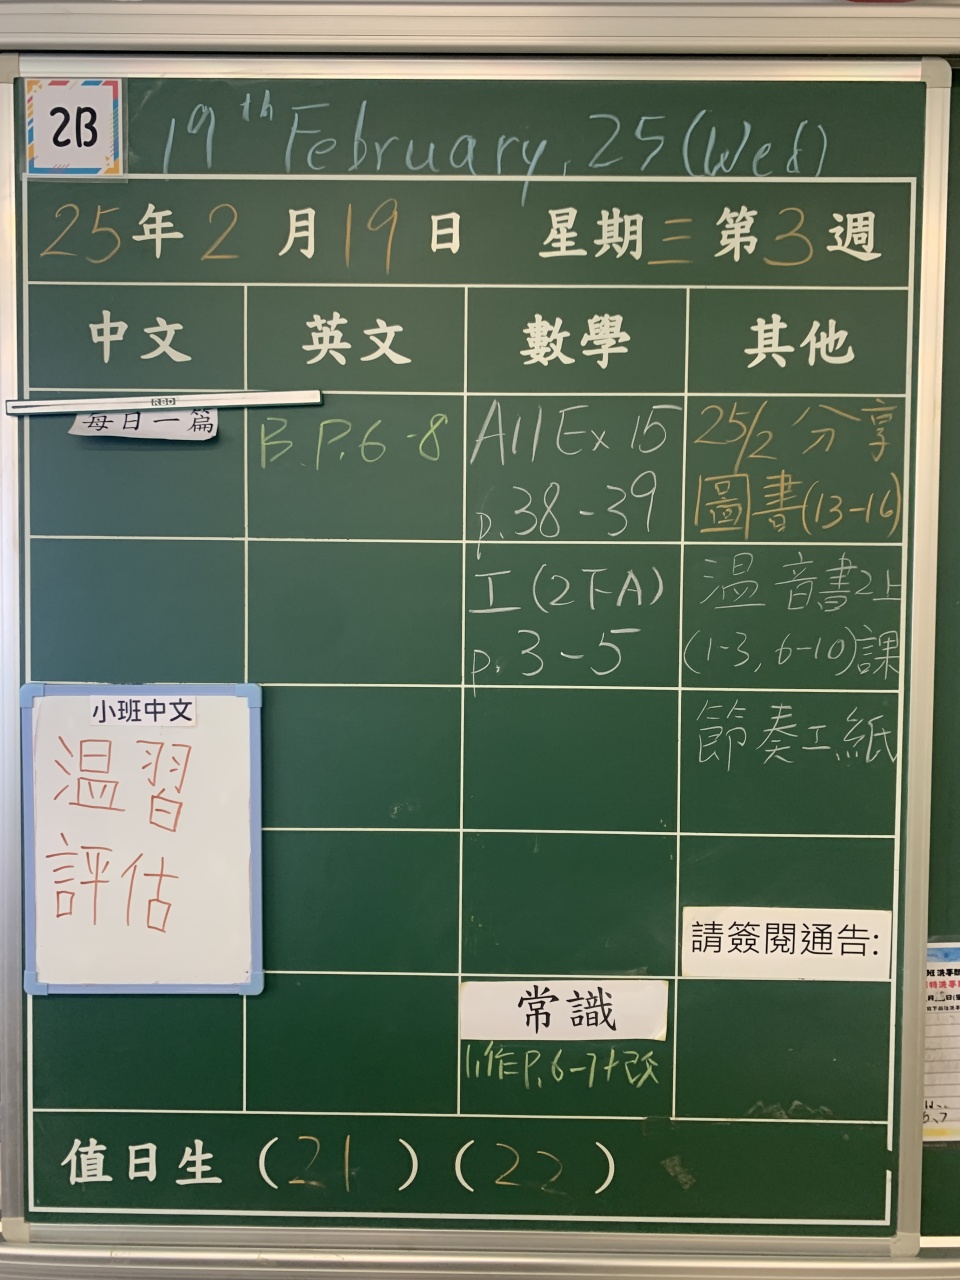 2B
19th February, 25 (Wed)
25年2月19日 星期三第3週
中文 英文 數學 其他
每日一篇
B.P.6-8
All Ex 15
p.38-39
25/2 分享
圖書(13-16)
工(2下A)
p.3-5
溫音書2上
(1-3, 6-10)課
小班中文
溫習
評估
節奏工紙
請簽閱通告:
常識
1.作P.6-7+改
值日生(21)(22)